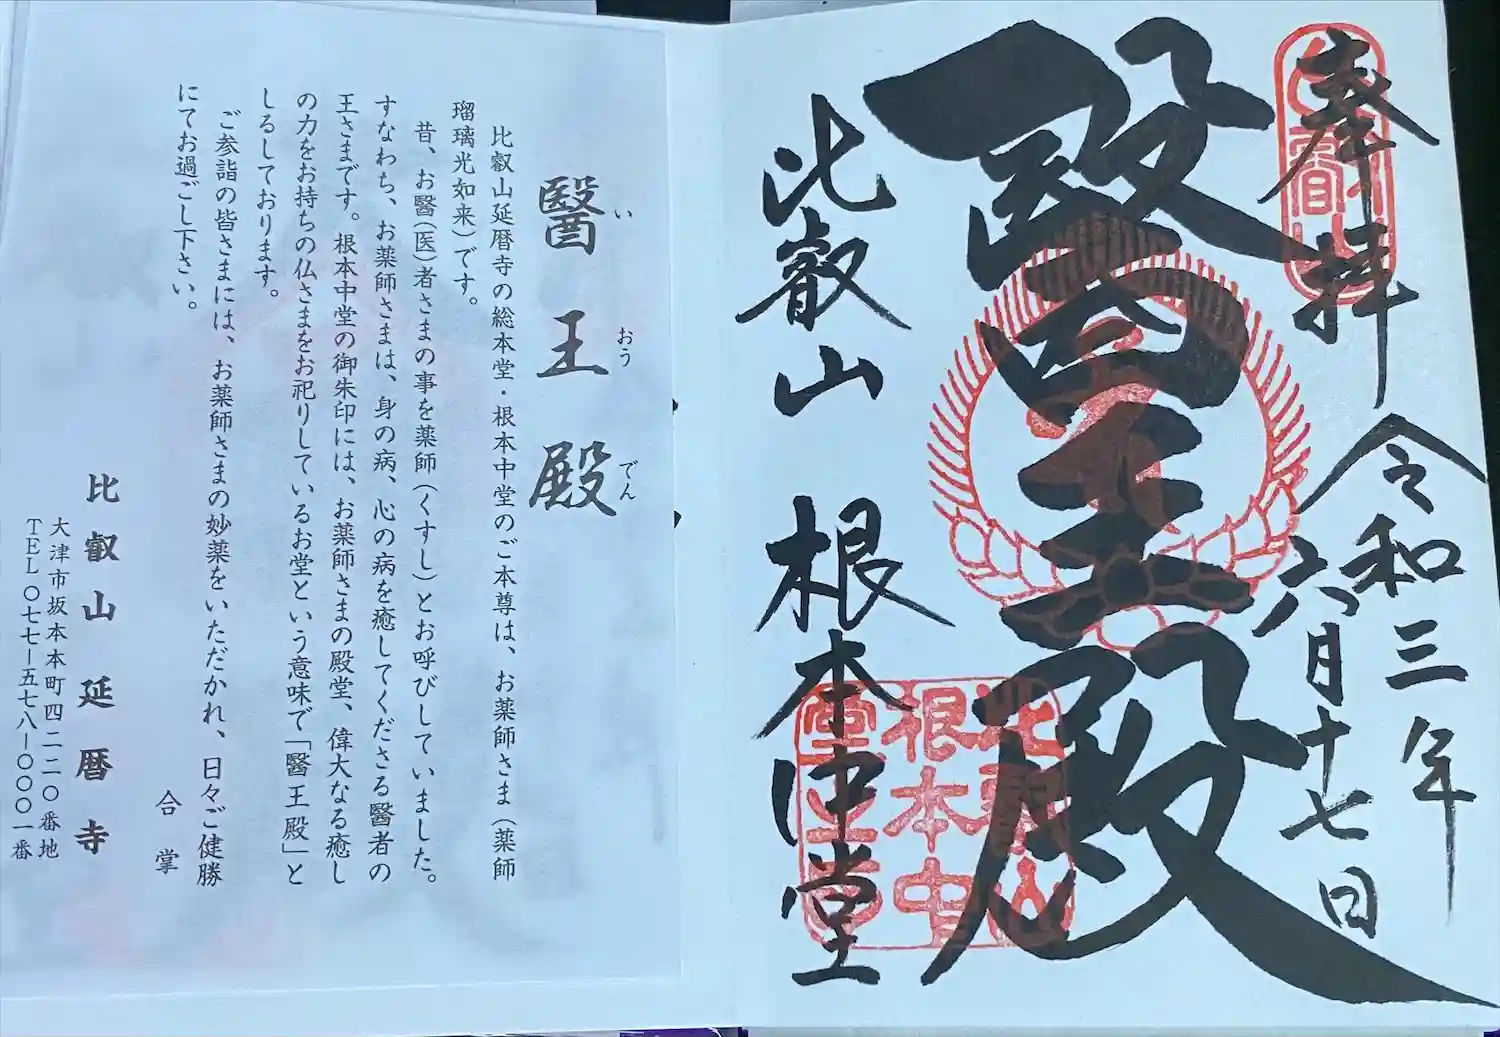 奉拝
令和三年
六月十七日
醫王殿
比叡山 根本中堂
醫王殿
いおうでん
比叡山延暦寺の総本堂・根本中堂のご本尊は、お薬師さま（薬師
瑠璃光如来）です。
昔、お醫（医）者さまの事を薬師（くすし）とお呼びしていました。
すなわち、お薬師さまは、身の病、心の病を癒してくださる醫者の
王さまです。根本中堂の御朱印には、お薬師さまの殿堂、偉大なる癒し
の力をお持ちの仏さまをお祀りしているお堂という意味で「醫王殿」と
しるしております。
ご参詣の皆さまには、お薬師さまの妙薬をいただかれ、日々ご健勝
にてお過ごし下さい。
合掌
比叡山延暦寺
大津市坂本本町四二二〇番地
TEL〇七七―五七八―〇〇〇一番